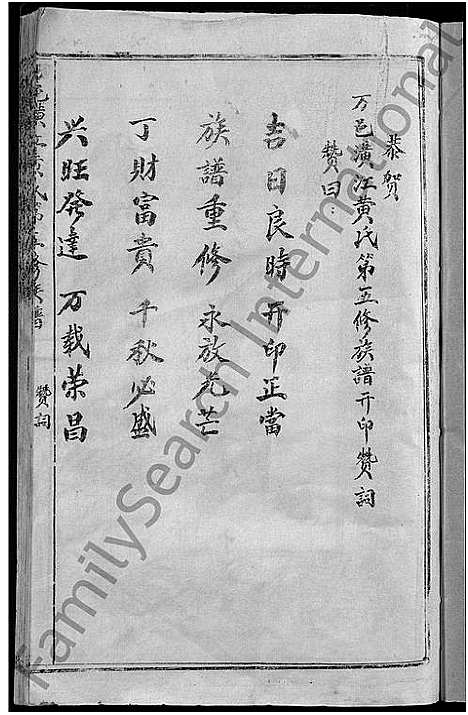 恭贺
万邑潢江黄氏第五修族譜开印赞詞
赞曰：
吉日良時 开印正當
族譜重修 永放光芒
丁財富貴 千秋必盛
兴旺發達 万载荣昌
赞詞
FamilySearch International